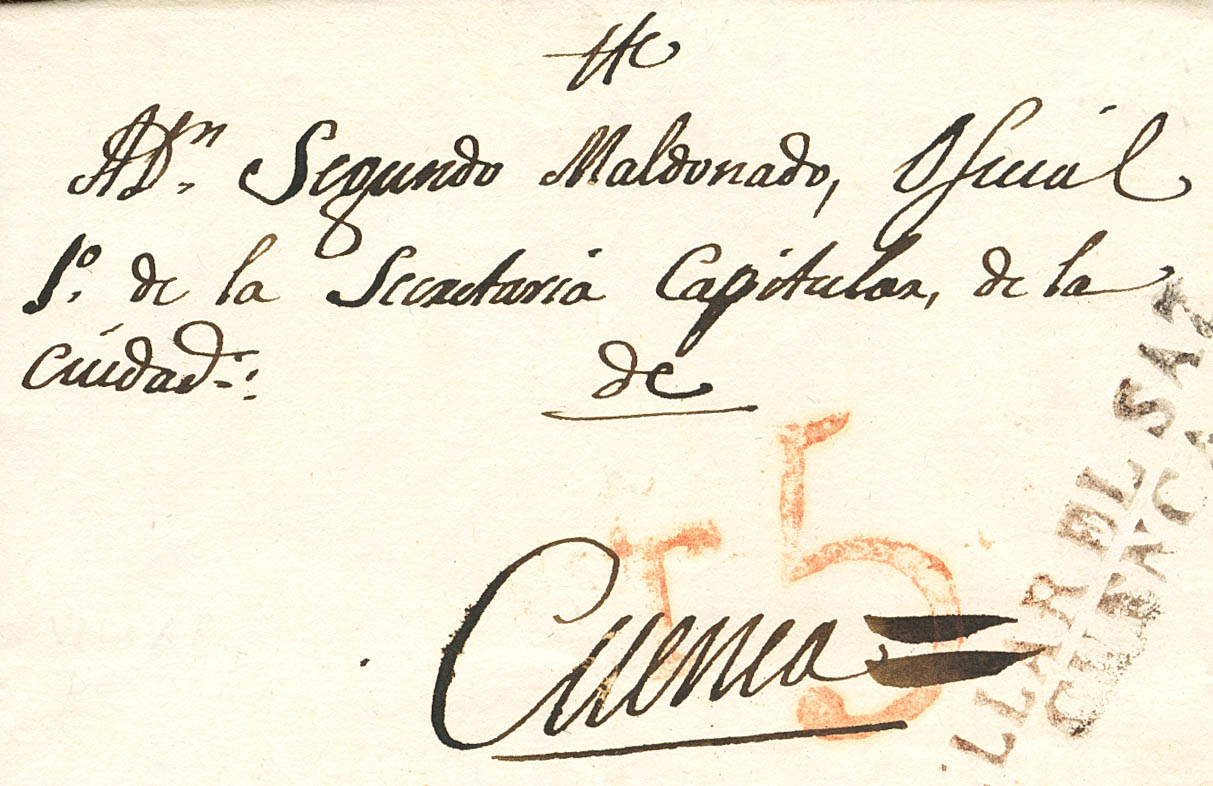 A Dn. Segundo Maldonado, Oficial
1º. de la Secretaria Capitular, de la
Ciudad.
de
Cuenca =
15
LLAR DEL SAZ
CUENCA